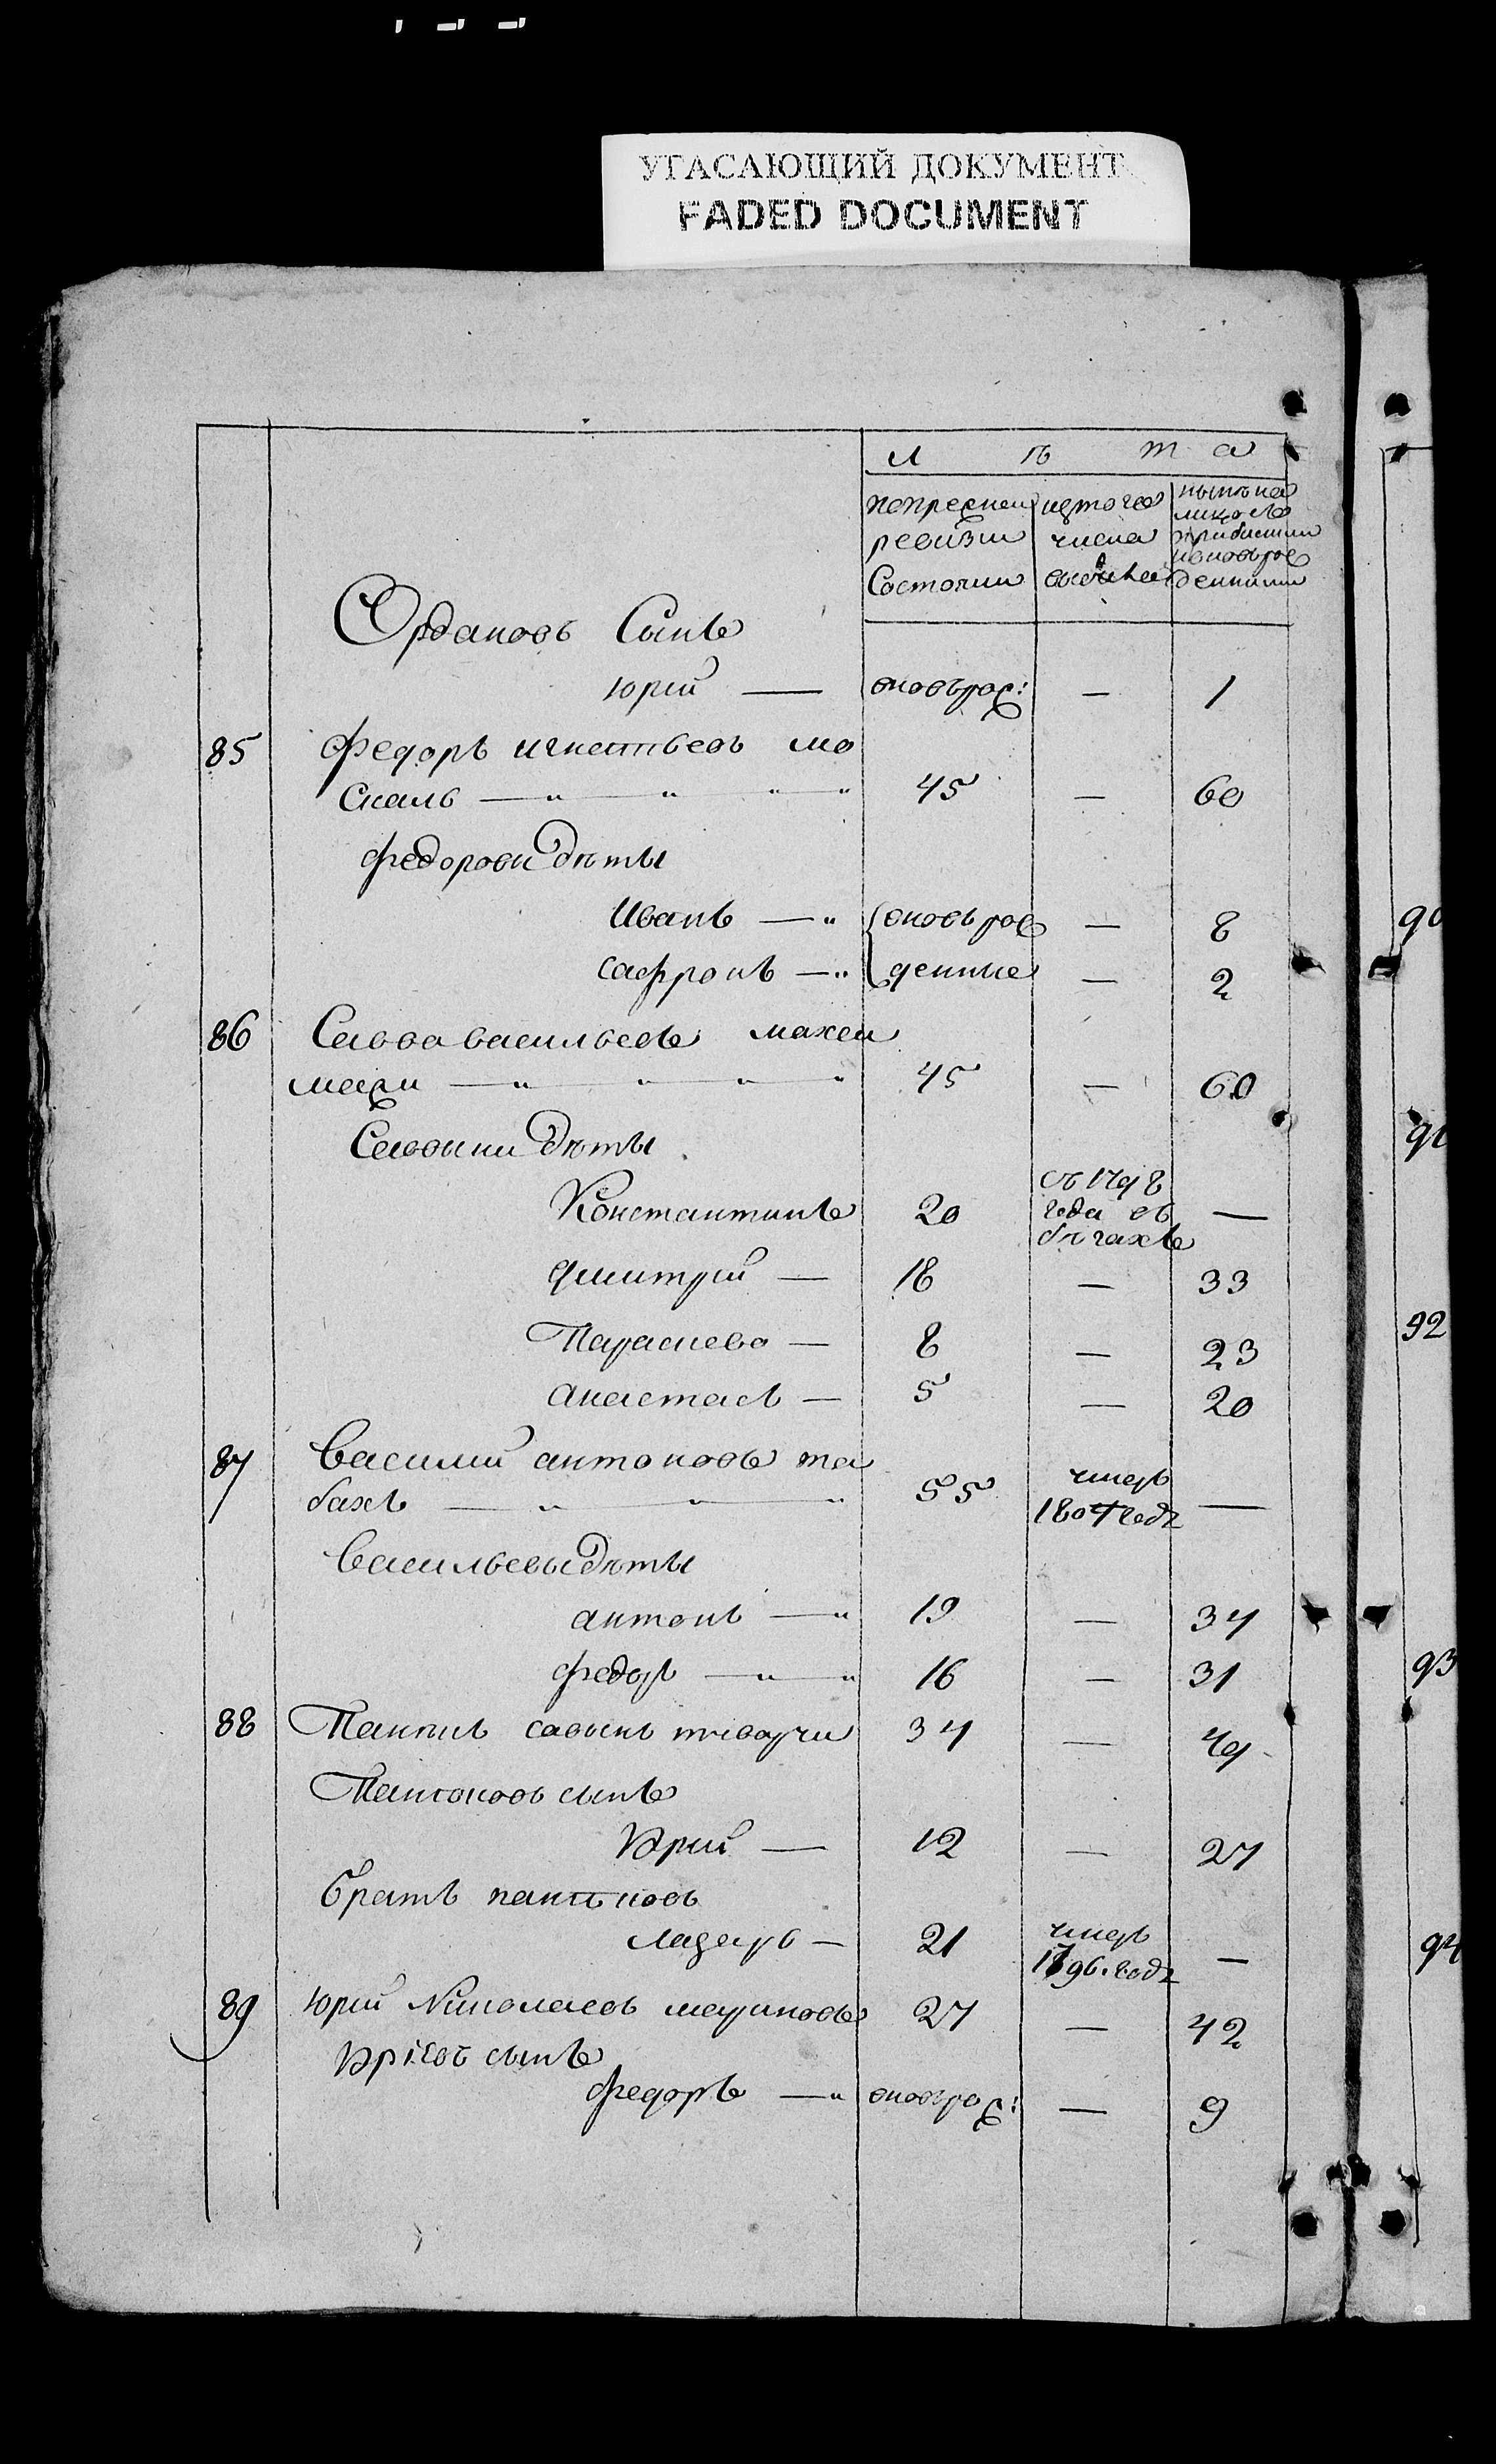 УГАСАЮЩИЙ ДОКУМЕНТ
FADED DOCUMENT
Л ѣ т а
попрежней ревизии состояли
изтого числа выбыло
ныне на лицо съ прибылыми и вновьрожденными
Ордановъ Сынъ
Юрий — вновьрож: — 1
85 Федоръ игнатьевъ мо
скаль — " " " " 45 — 60
федоровы дѣти
Иванъ — " вновьрож — 8
сафронъ — " денные — 2
86 Савва васильевъ махои
мажи — " " " " 45 — 60
Саввины дѣти
Константинъ 20 съ 1798 года въ бѣгахъ —
дмитрий — 18 — 33
Параскева — 8 — 23
анастасъ — 5 — 20
87 Василий антоновъ та
бахъ — " " " 55 умеръ 1804 годъ —
васильевы дѣти
антонъ — " 19 — 34
федоръ — " " 16 — 31
88 савынъ 34 — 49
сынъ
Юрий — 12 — 27
братъ
лазарь — 21 умеръ 1796. годъ —
89 Юрий Николаевъ мариновъ 27 — 42
Юриевъ сынъ
федоръ — " вновьрож: — 9
90
91
92
93
94